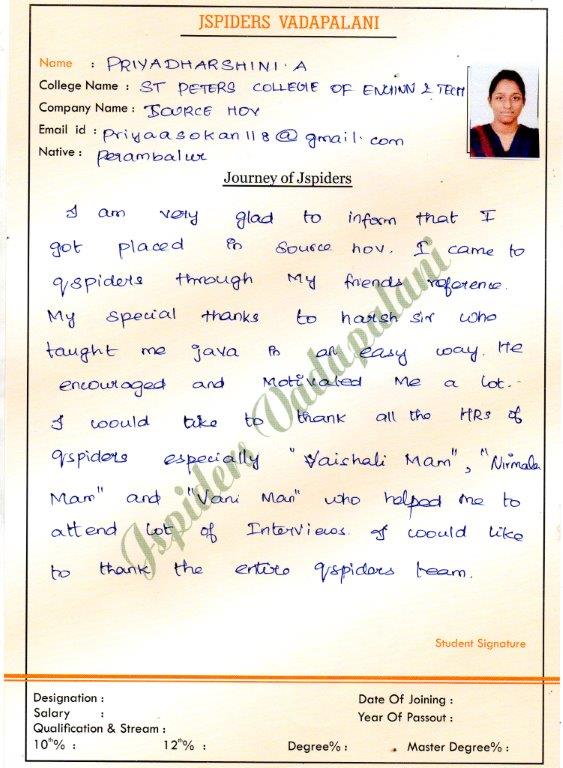 JSPIDERS VADAPALANI
Name : PRIYADHARSHINI. A
College Name : ST PETERS COLLEGE OF ENGINN & TECH
Company Name : SOURCE HOV
Email id : priyaasokan118@gmail.com
Native : Perambalur
Journey of Jspiders
I am very glad to inform that I
got placed in source hov. I came to
qspiders through My friends reference.
My special thanks to harsh sir who
taught me java in an easy way. He
encouraged and Motivated Me a lot.
I would like to thank all the HRs of
qspiders especially "Vaishali Mam", "Nirmala
Mam" and "Vani Mam" who helped me to
attend lot of Interviews. I would like
to thank the entire qspiders team.
Jspiders Vadapalani
Student Signature
Designation :
Date Of Joining :
Salary :
Year Of Passout :
Qualification & Stream :
10th% : 12th% : Degree% : Master Degree% :